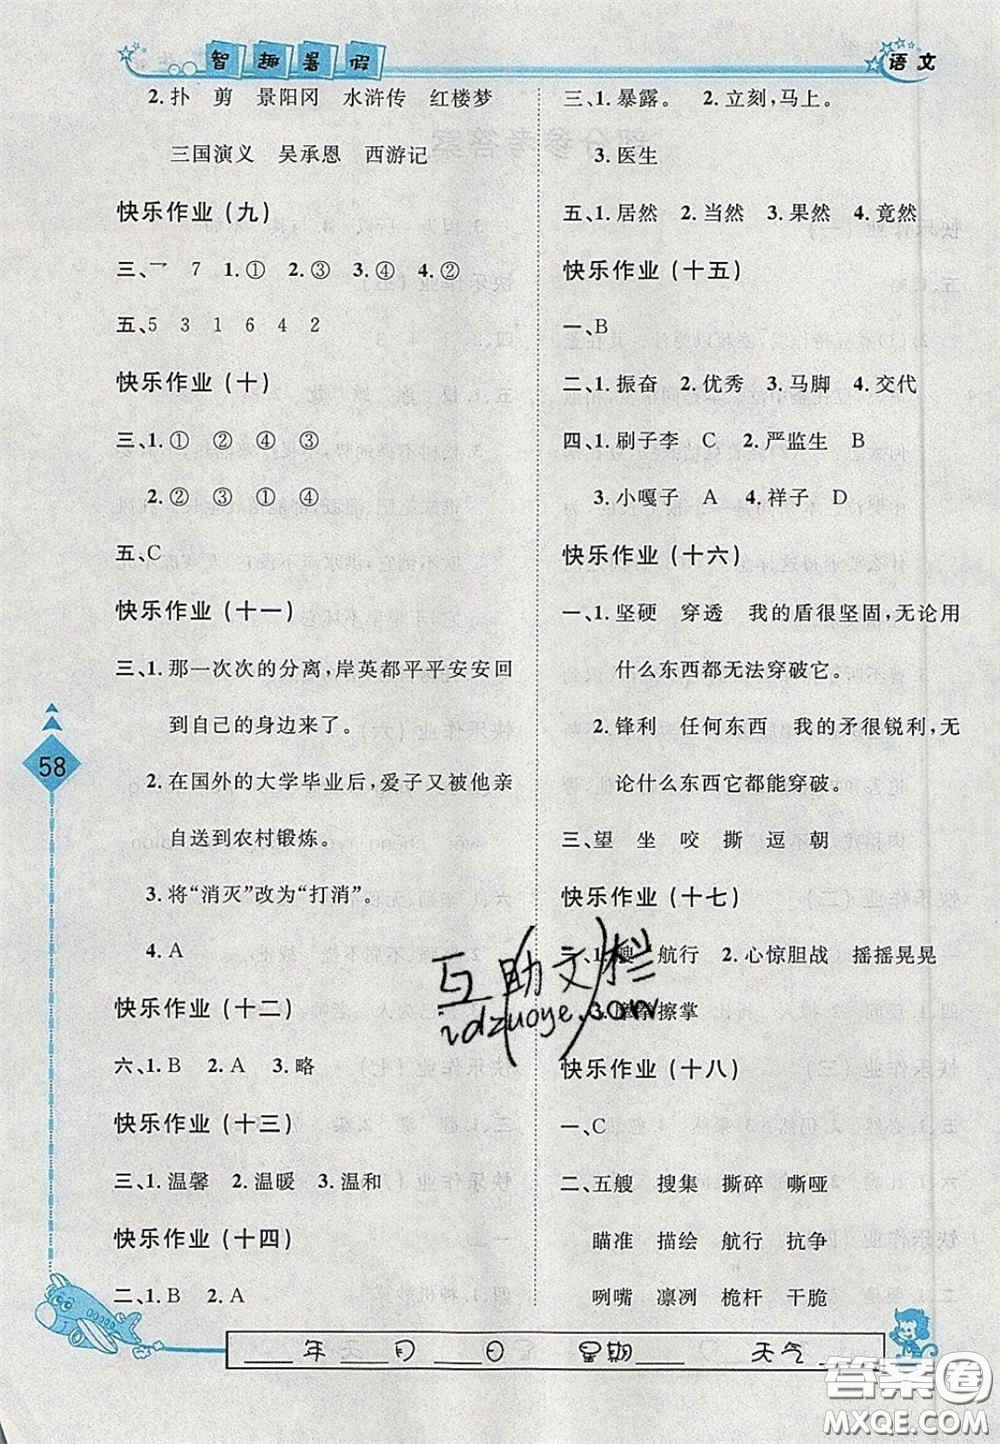 智趣暑假
语文
2.扑 剪 景阳冈 水浒传 红楼梦
三国演义 吴承恩 西游记
快乐作业(九)
三、乛 7 1.① 2.③ 3.④ 4.②
五、5 3 1 6 4 2
快乐作业(十)
三、1.① ② ④ ③
2.② ③ ① ④
五、C
快乐作业(十一)
三、1.那一次次的分离,岸英都平平安安回
到自己的身边来了。
2.在国外的大学毕业后,爱子又被他亲
自送到农村锻炼。
3.将“消灭”改为“打消”。
4.A
快乐作业(十二)
六、1.B 2.A 3.略
快乐作业(十三)
三、1.温馨 2.温暖 3.温和
快乐作业(十四)
二、1.B 2.A
三、1.暴露。 2.立刻,马上。
3.医生
五、1.居然 2.当然 3.果然 4.竟然
快乐作业(十五)
一、B
二、1.振奋 2.优秀 3.马脚 4.交代
四、1.刷子李 C 2.严监生 B
3.小嘎子 A 4.祥子 D
快乐作业(十六)
一、1.坚硬 穿透 我的盾很坚固,无论用
什么东西都无法穿破它。
2.锋利 任何东西 我的矛很锐利,无
论什么东西它都能穿破。
三、望 坐 咬 撕 逗 朝
快乐作业(十七)
1.艘 航行 2.心惊胆战 摇摇晃晃
3.摩拳擦掌
快乐作业(十八)
一、C
二、五艘 搜集 撕碎 嘶哑
瞄准 描绘 航行 抗争
咧嘴 凛冽 桅杆 干脆
58
年 月 日 星期 天气
互助文栏
idzuoye.com
答案圈
MXQE.COM